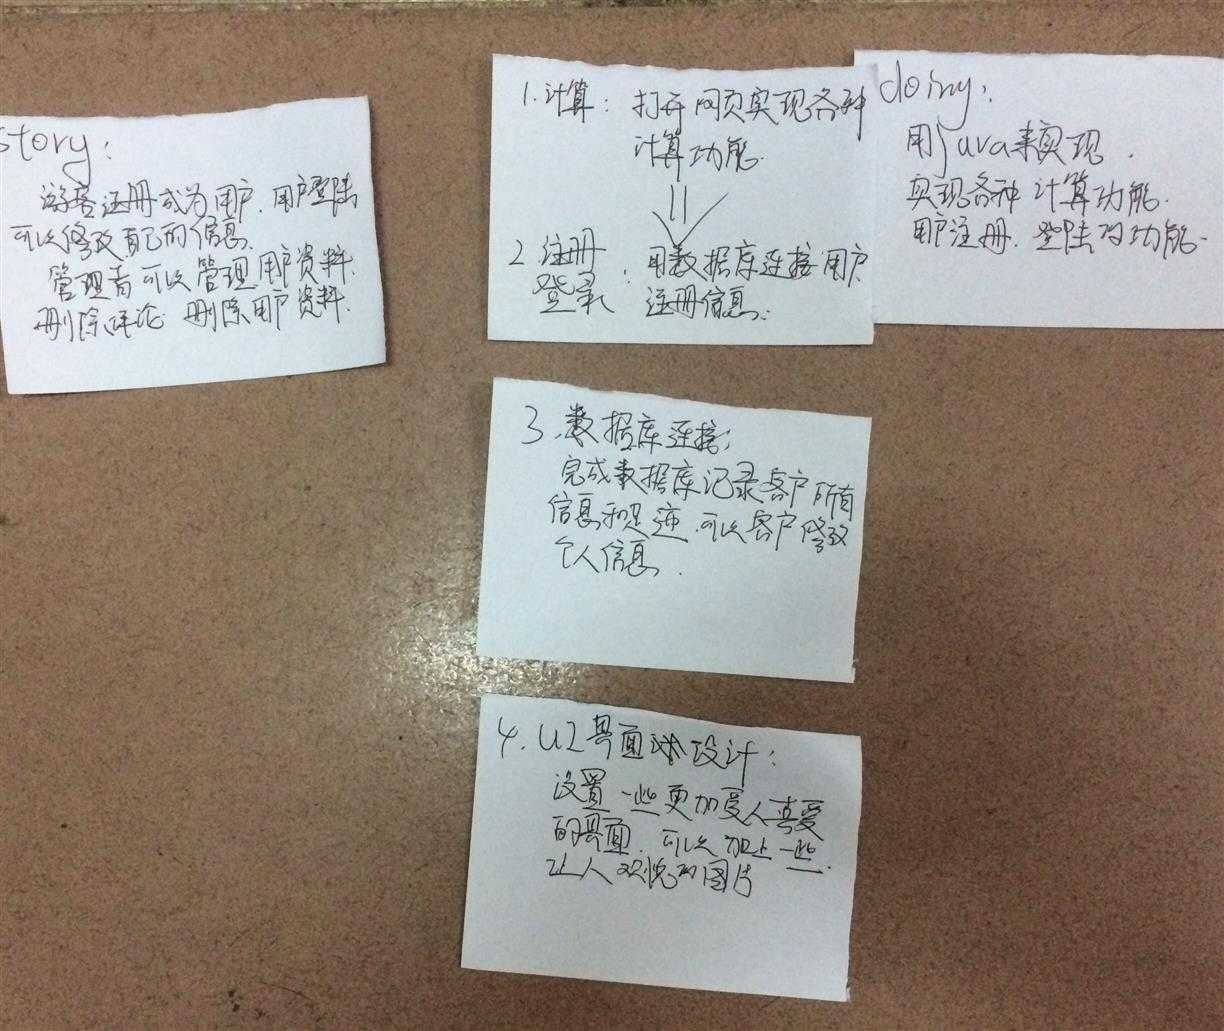 story:
游客注册成为用户.用户登陆
可以修改自己的信息.
管理者可以管理用户资料.
删除评论 删除用户资料.
1.计算: 打开网页实现各种
计算功能.
2.注册 : 用数据库连接用户
登录 注册信息.
doing:
用java来实现.
实现各种计算功能.
用户注册.登陆的功能.
3.数据库连接:
完成数据库记录客户所有
信息和 .可以客户修改
个人信息.
4.UI 界面 设计:
设置一些更加受人喜爱
的界面.可以加上一些
让人欢悦的图片